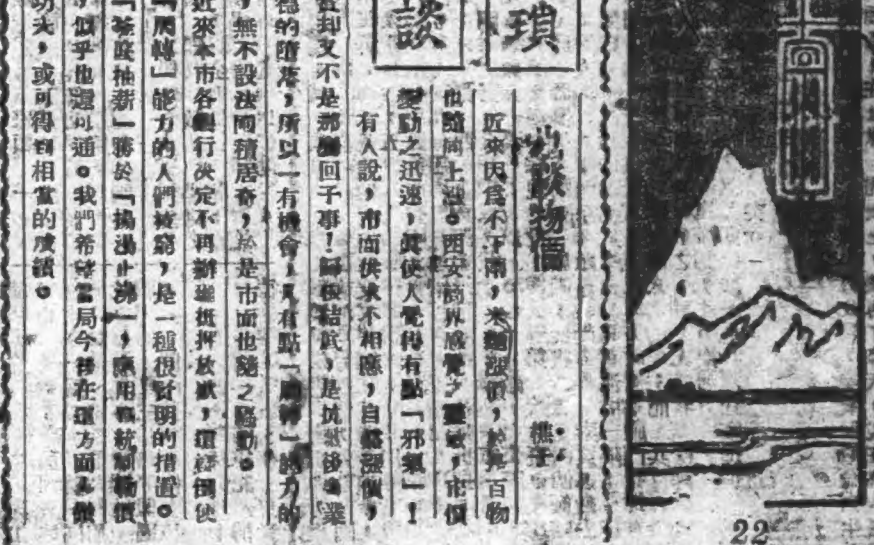 瑣
談
物價
樵子
近來因爲不下雨，米麵漲價，於是百物
也隨向上漲。西安商界感覺之靈敏，市價
變動之迅速，眞使人覺得有點「邪氣」！
有人說，市面供求不相應，自然漲價，
却又不是那麼回子事！歸根結底，是抗戰後商業
德的墮落，所以一有機會，凡有點「周轉」能力的
，無不設法囤積居奇，於是市面也隨之騷動。
近來本市各銀行決定不再辦理抵押放款，這得使
「周轉」能力的人們技窮，是一種很賢明的措置。
「釜底抽薪」勝於「揚湯止沸」，應用爲統制物價
，似乎也還可通。我們希望當局今後在這方面多做
功夫，或可得到相當的成績。
22